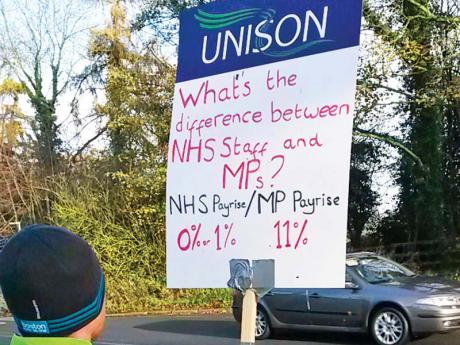 UNISON
What's the
difference between
NHS Staff and
MPs?
NHS Payrise/MP Payrise
0% or 1% 11%